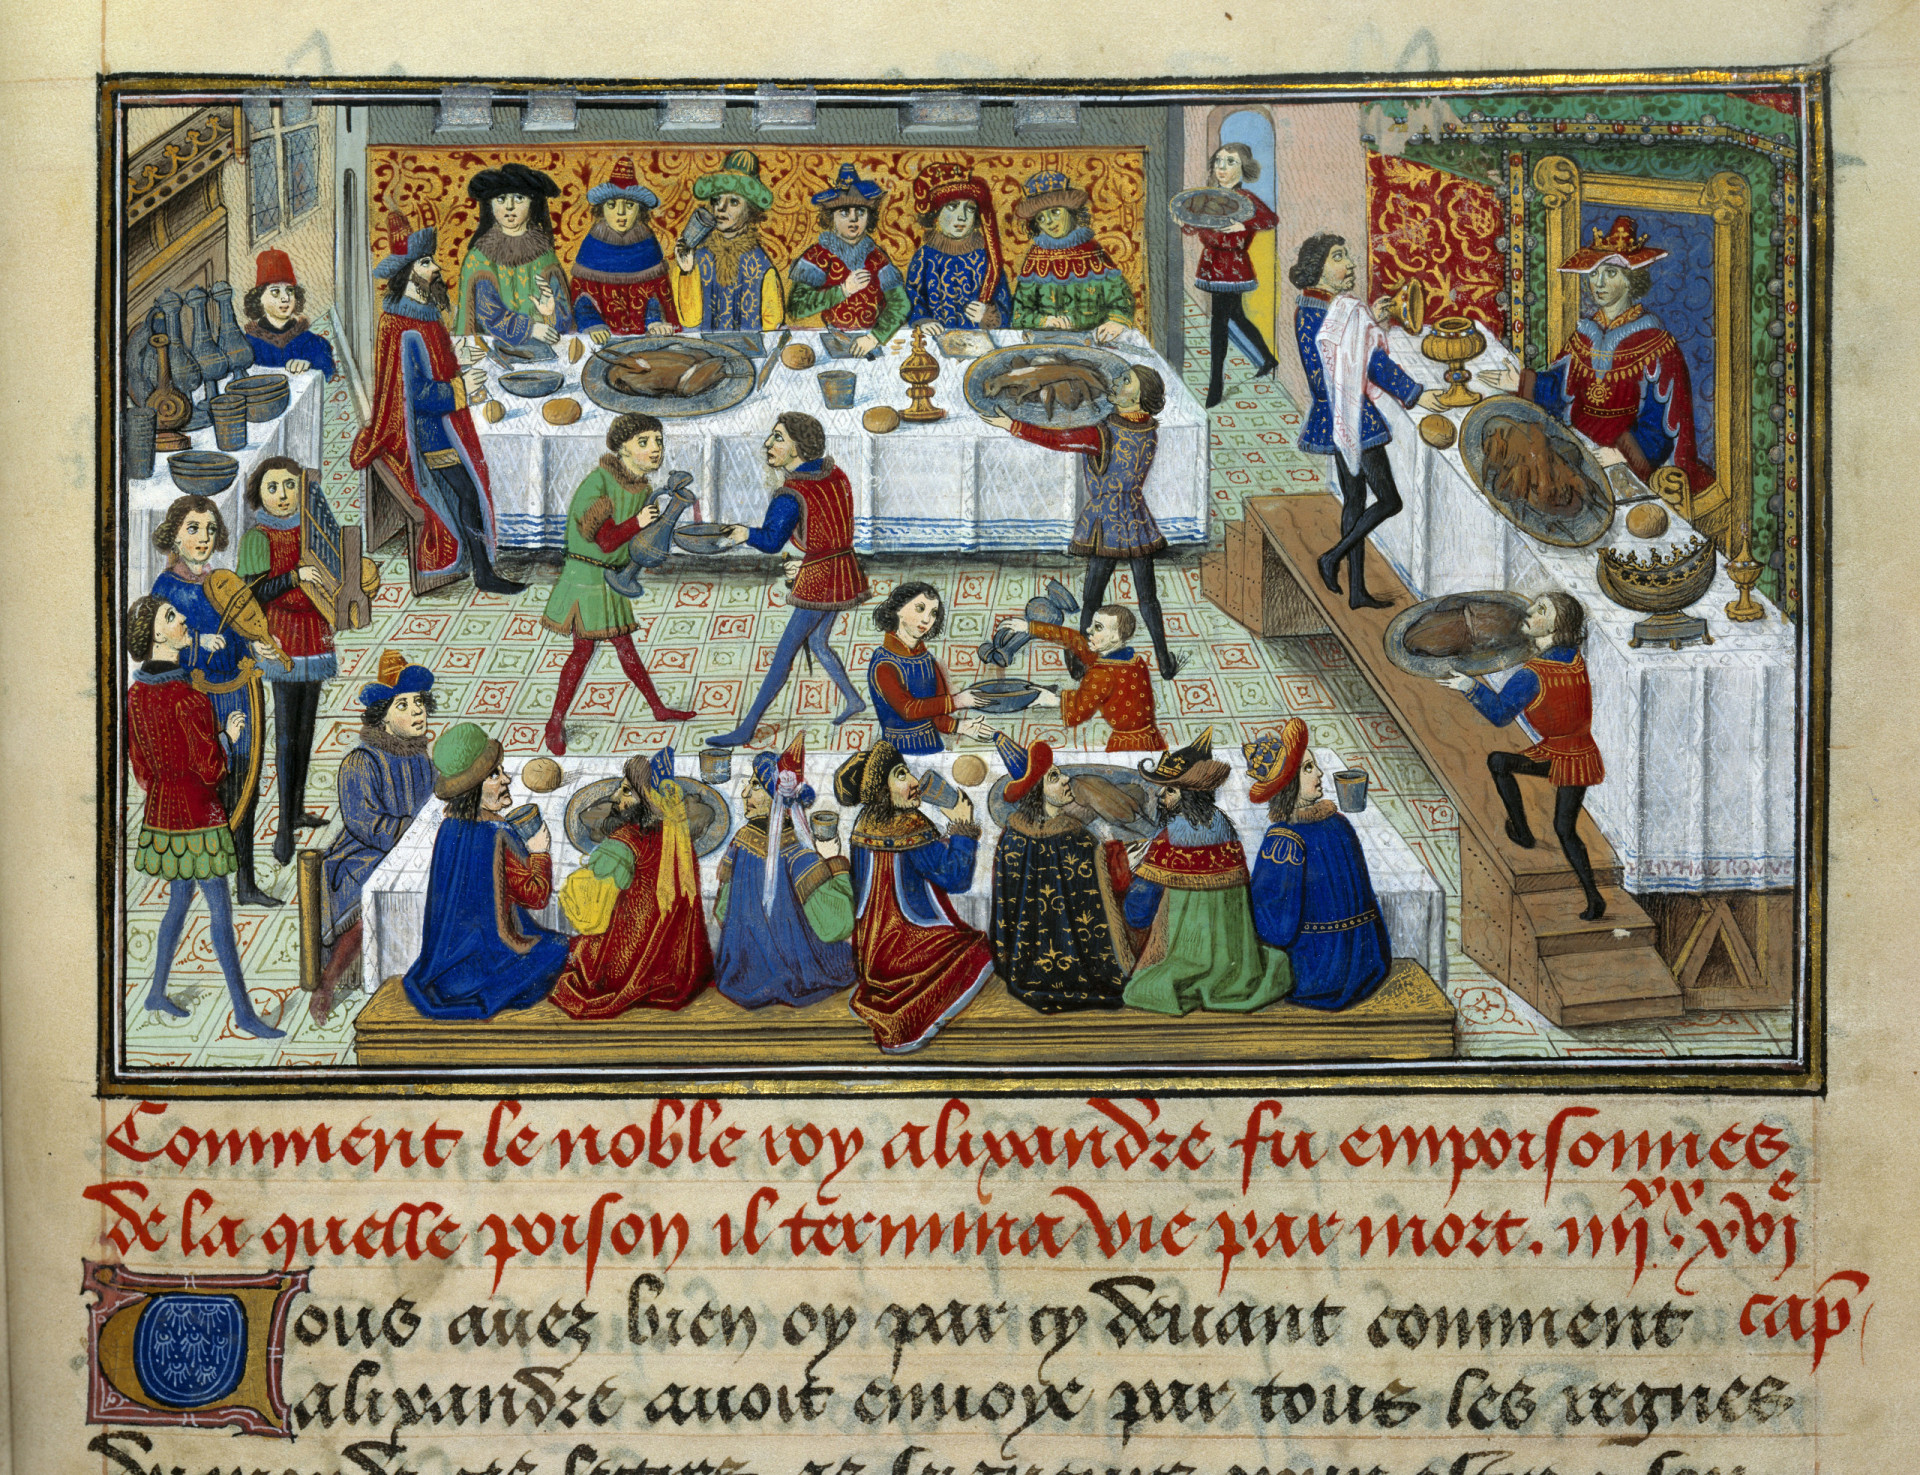 Comment le noble roy alixandre fu empoisonnes
de la quelle poison il termina vie par mort. iiii xx xvi e
cap
Vous auez bien oy par cy deuant comment
alixandre auoit enuoye par tous les regnes